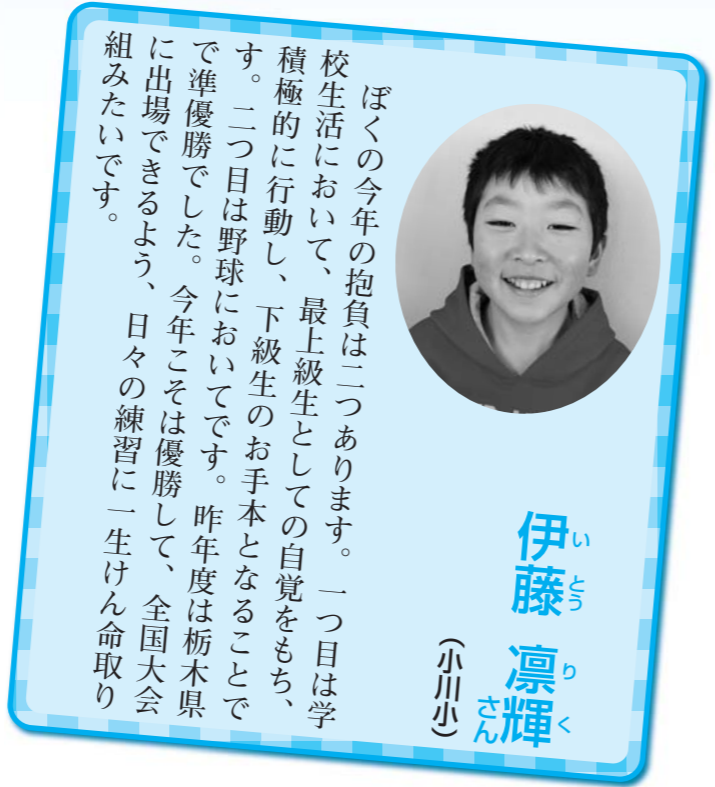 伊藤 凛輝さん
いとう りく
(小川小)
ぼくの今年の抱負は二つあります。一つ目は学
校生活において、最上級生としての自覚をもち、
積極的に行動し、下級生のお手本となることで
す。二つ目は野球においてです。昨年度は栃木県
で準優勝でした。今年こそは優勝して、全国大会
に出場できるよう、日々の練習に一生けん命取り
組みたいです。